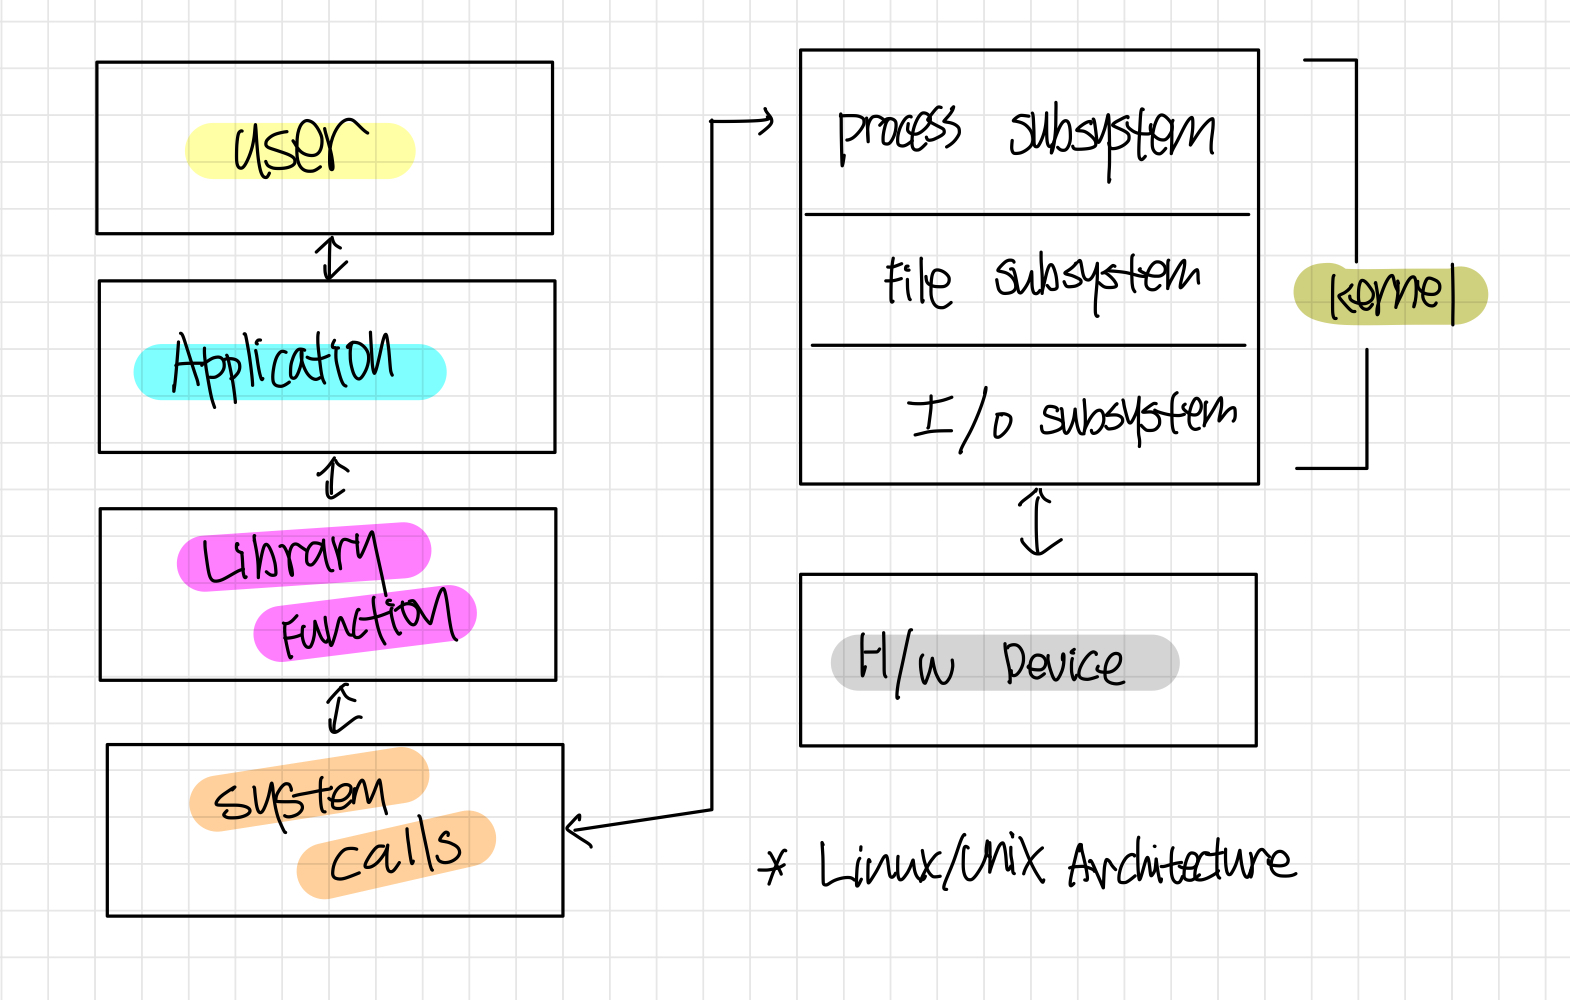 user
Application
Library
Function
system
calls
process subsystem
File subsystem
I/o subsystem
kernel
H/w Device
* Linux/Unix Architecture